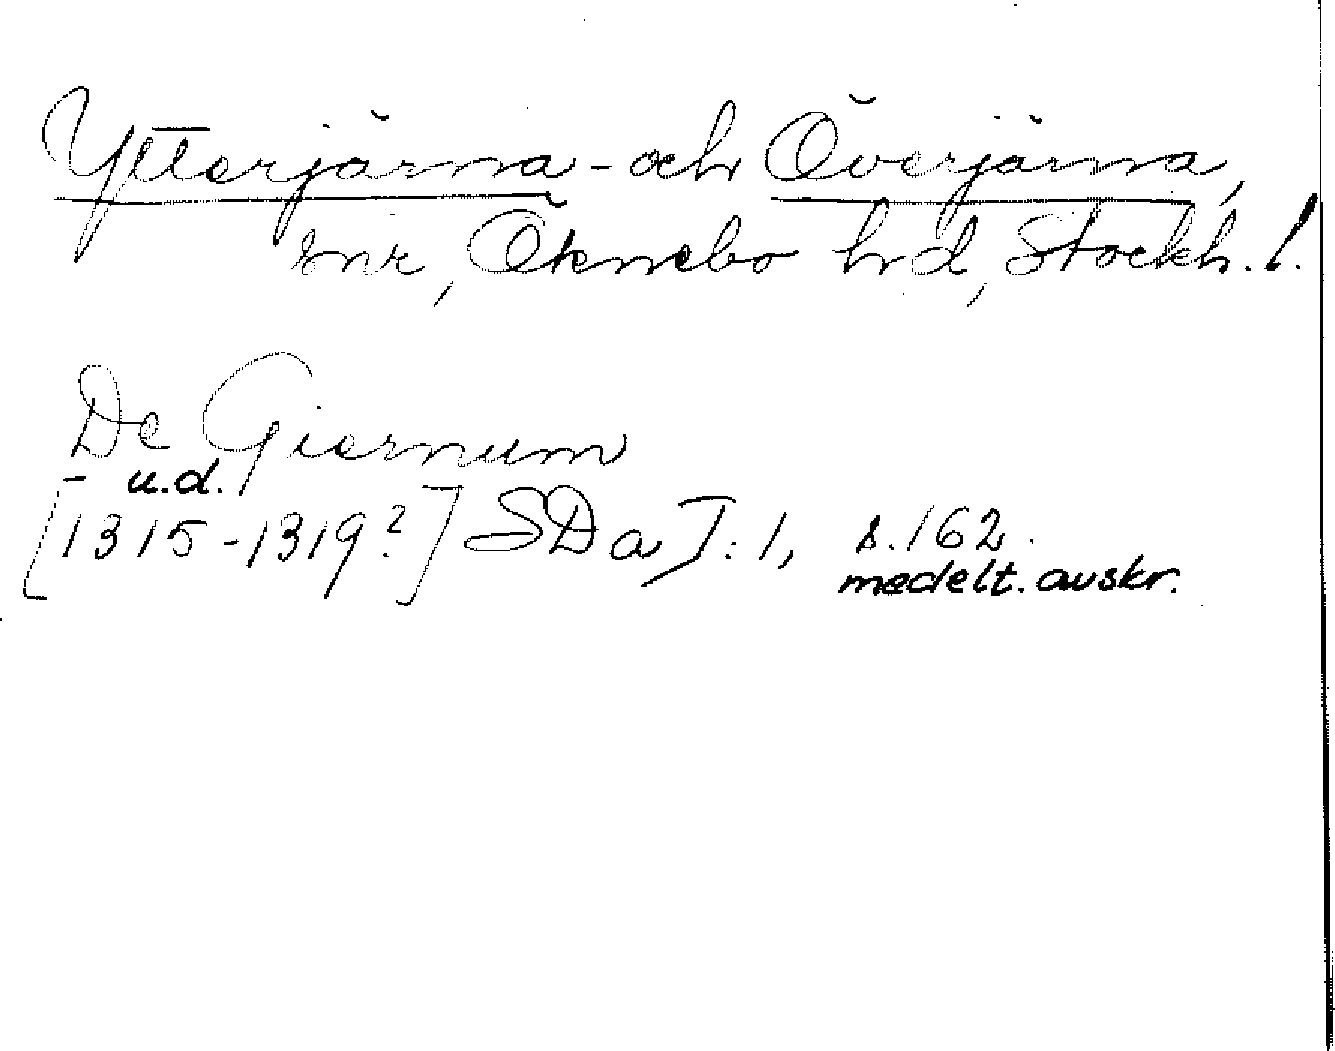 Ytterjärna- och Överjärna,
snr, Öknebo hd, Stockh. l.
De Giernum
- u.d.
[1315-1319?] SDa I:1, s.162.
medelt. avskr.